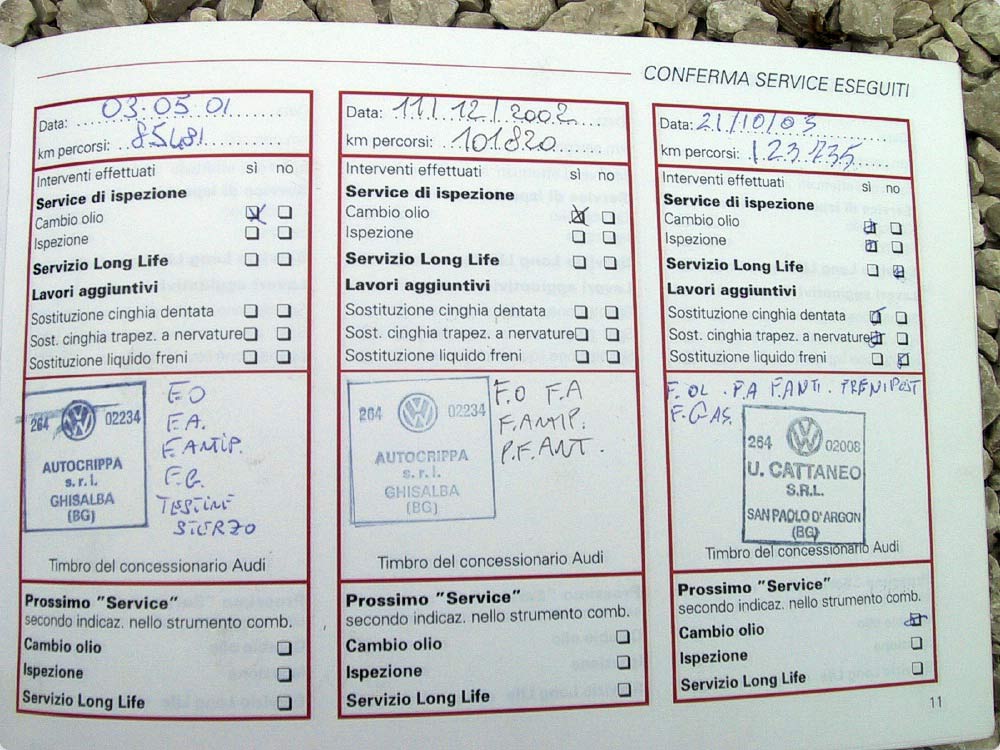 CONFERMA SERVICE ESEGUITI
Data: 03.05.01
km percorsi: 85481
Interventi effettuati sì no
Service di ispezione
Cambio olio
Ispezione
Servizio Long Life
Lavori aggiuntivi
Sostituzione cinghia dentata
Sost. cinghia trapez. a nervature
Sostituzione liquido freni
264 02234
AUTOCRIPPA
s.r.l.
GHISALBA
(BG)
F.O
F.A.
F.ANTIP.
F.G.
TESTINE
STERZO
Timbro del concessionario Audi
Prossimo "Service"
secondo indicaz. nello strumento comb.
Cambio olio
Ispezione
Servizio Long Life
Data: 11/12/2002
km percorsi: 101820
Interventi effettuati sì no
Service di ispezione
Cambio olio
Ispezione
Servizio Long Life
Lavori aggiuntivi
Sostituzione cinghia dentata
Sost. cinghia trapez. a nervature
Sostituzione liquido freni
264 02234
AUTOCRIPPA
s.r.l.
GHISALBA
(BG)
F.O F.A
F.ANTIP.
P.F.ANT.
Timbro del concessionario Audi
Prossimo "Service"
secondo indicaz. nello strumento comb.
Cambio olio
Ispezione
Servizio Long Life
Data: 21/10/03
km percorsi: 123.735
Interventi effettuati sì no
Service di ispezione
Cambio olio
Ispezione
Servizio Long Life
Lavori aggiuntivi
Sostituzione cinghia dentata
Sost. cinghia trapez. a nervature
Sostituzione liquido freni
F.OL. F.A F.ANTI. FRENI POST
F.GAS.
264 02008
U. CATTANEO
S.R.L.
SAN PAOLO D'ARGON
(BG)
Timbro del concessionario Audi
Prossimo "Service"
secondo indicaz. nello strumento comb.
Cambio olio
Ispezione
Servizio Long Life
11